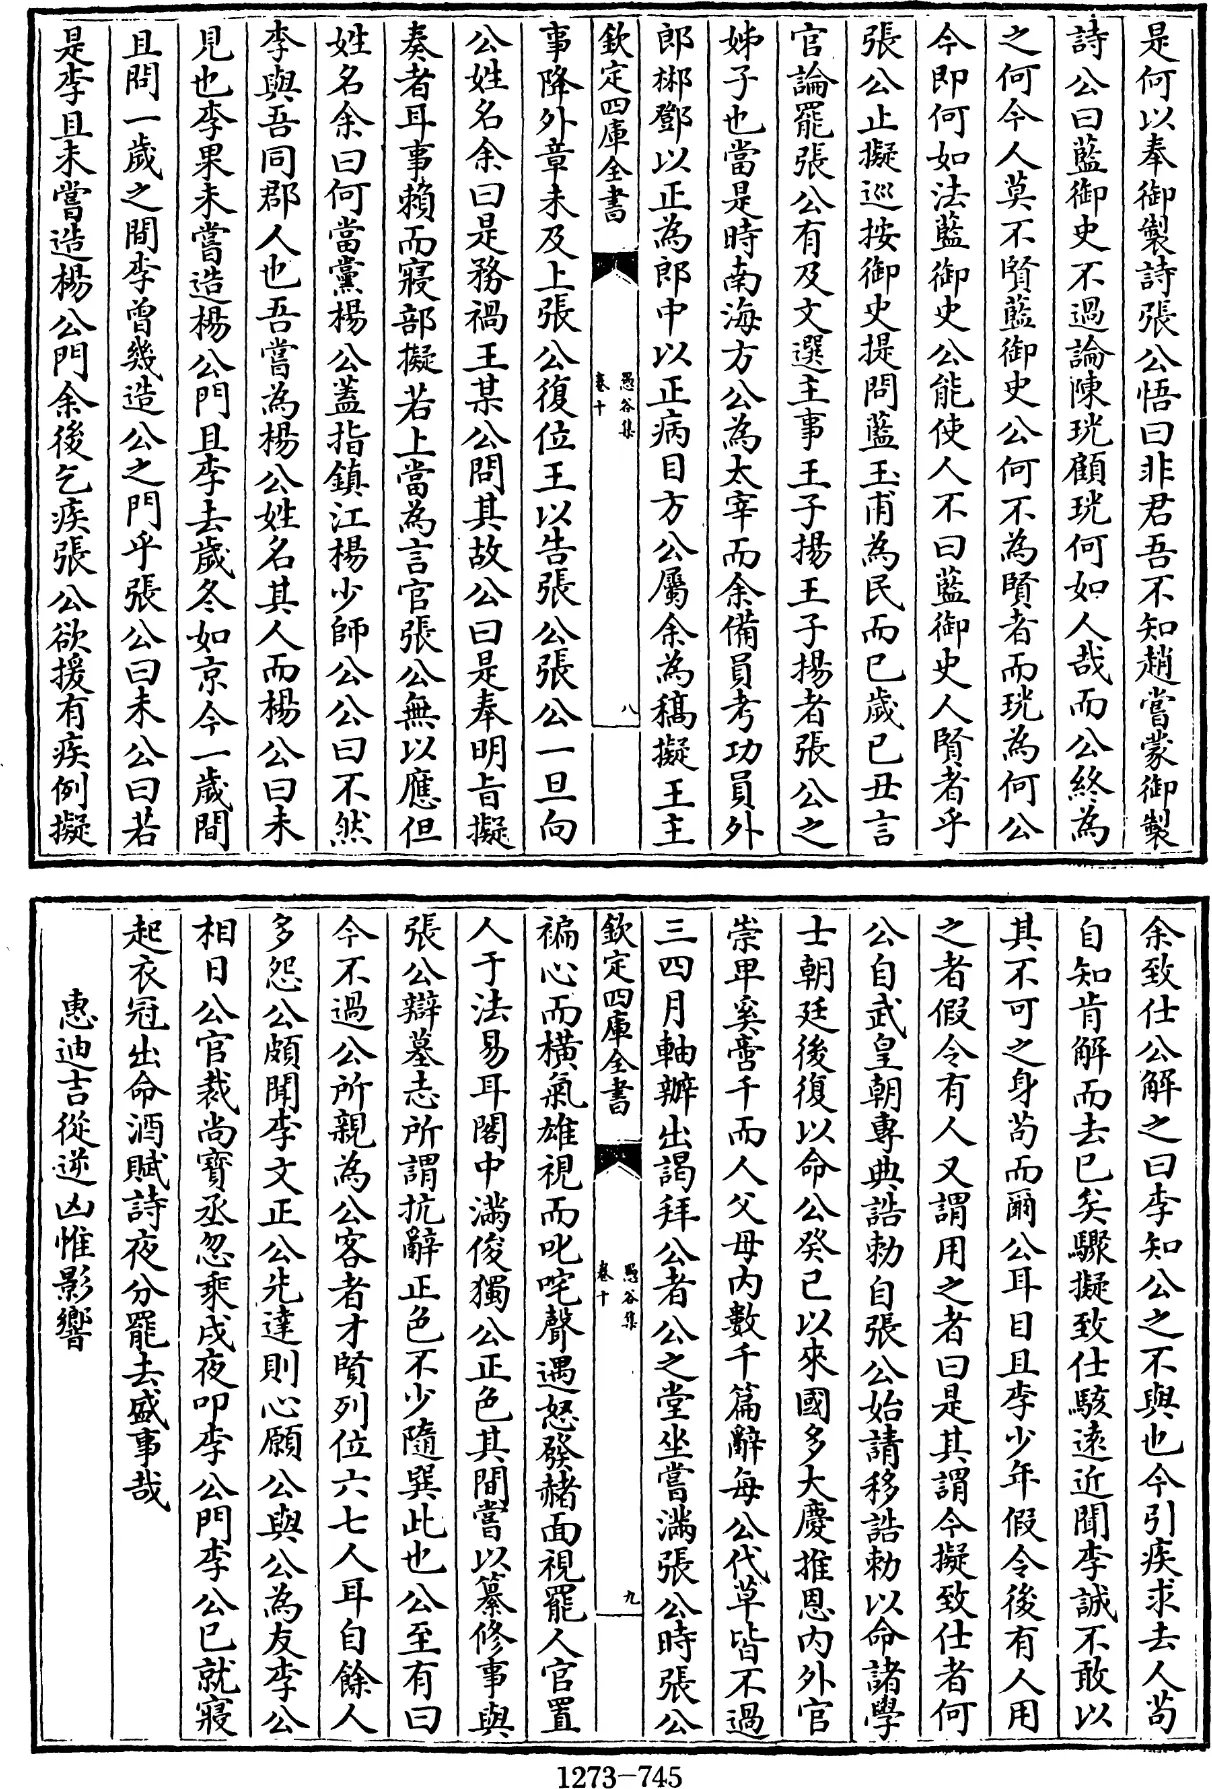 是何以奉御製詩張公悟曰非君吾不知趙嘗蒙御製
詩公曰藍御史不過論陳珖顧珖何如人哉而公終為
之何今人莫不賢藍御史公何不為賢者而珖為何公
今即何如法藍御史公能使人不曰藍御史人賢者乎
張公止擬巡按御史提問藍玉甫為民而已歲己丑言
官論罷張公有及文選主事王子揚王子揚者張公之
姊子也當是時南海方公為太宰而余備員考功員外
郎郴鄧以正為郎中以正病目方公屬余為稿擬王主
欽定四庫全書
愚谷集
卷十
八
事降外章未及上張公復位王以告張公張公一旦向
公姓名余曰是務禍王某公問其故公曰是奉明旨擬
奏者耳事賴而寢部擬若上當為言官張公無以應但
姓名余曰何當黨楊公蓋指鎮江楊少師公公曰不然
李與吾同郡人也吾嘗為楊公姓名其人而楊公曰未
見也李果未嘗造楊公門且李去歲冬如京今一歲間
且問一歲之間李曾幾造公之門乎張公曰未公曰若
是李且未嘗造楊公門余後乞疾張公欲援有疾例擬
余致仕公解之曰李知公之不與也今引疾求去人苟
自知肯解而去已矣驟擬致仕駭遠近聞李誠不敢以
其不可之身苟而爾公耳目且李少年假令後有人用
之者假令有人又謂用之者曰是其謂今擬致仕者何
公自武皇朝專典誥勅自張公始請移誥勅以命諸學
士朝廷後復以命公癸巳以來國多大慶推恩內外官
崇卑奚啻千而人父母內數千篇辭每公代草皆不過
三四月軸辦出謁拜公者公之堂坐嘗滿張公時張公
欽定四庫全書
愚谷集
卷十
九
褊心而橫氣雄視而叱咤聲遇怒發赭面視罷人官置
人于法易耳閣中滿俊獨公正色其間嘗以纂修事與
張公辯墓志所謂抗辭正色不少隨巽此也公至有曰
今不過公所親為公客者才賢列位六七人耳自餘人
多怨公頗聞李文正公先達則心願公與公為友李公
相日公官裁尚寶丞忽乘戌夜叩李公門李公已就寢
起衣冠出命酒賦詩夜分罷去盛事哉
惠迪吉從逆凶惟影響
1273-745